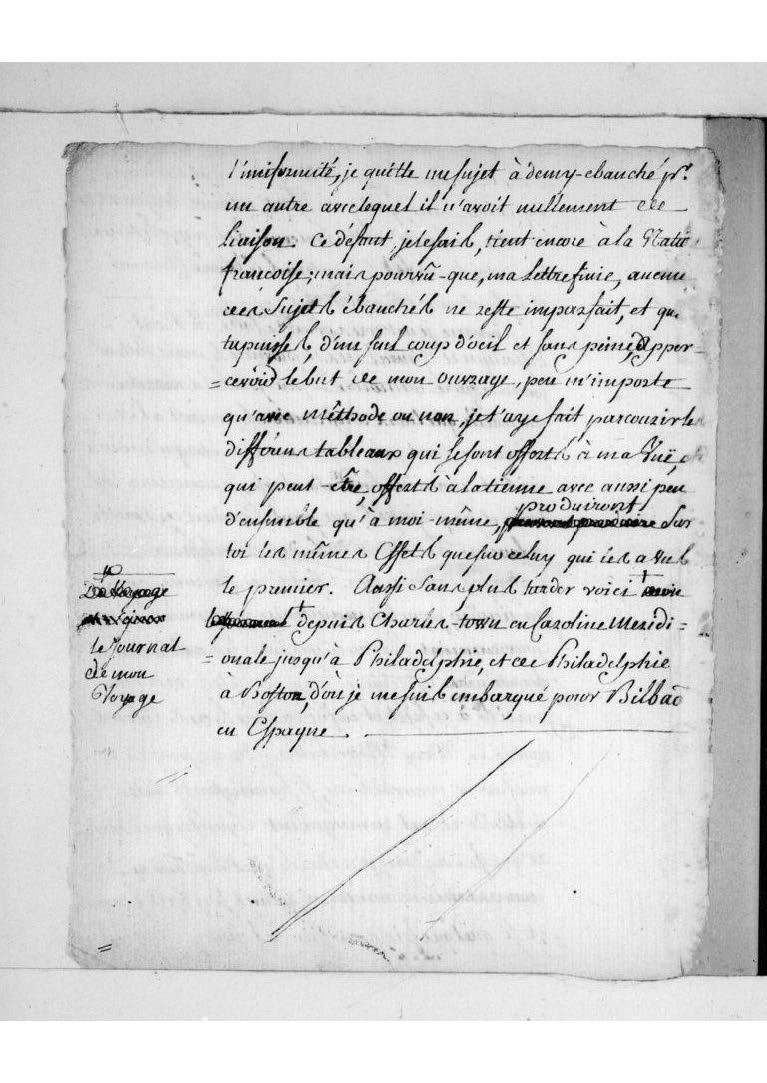 l'uniformité, je quitte un sujet à demy-ebauché pr.
un autre avec lequel il n'avoit nullement de
liaison. Ce défaut, je le sais, tient encore à la Natio
françoise; mais pourvû-que, ma lettre finie, aucun
des Sujets ébauchés ne reste imparfait, et que
tu puisses, d'un seul coup d'oeil et sans peine, apper-
=cevoir le but de mon ouvrage, peu m'importe
qu'avec méthode ou non, je t'aye fait parcourir les
différens tableaux qui se sont offerts à ma Vuë,
qui peut-être, offerts à la tienne avec aussi peu
d'ensemble qu'à moi-même, produiront Sur
toi les mêmes Effets que sur celuy qui les a vus
le premier. Aussi Sans plus tarder voici +
+ le Journal
de mon
Voyage
depuis Charles-town en Caroline Meridi=
=onale jusqu'à Philadelphie, et de Philadelphie
à Boston, d'où je me suis embarqué pour Bilbao
en Espagne.